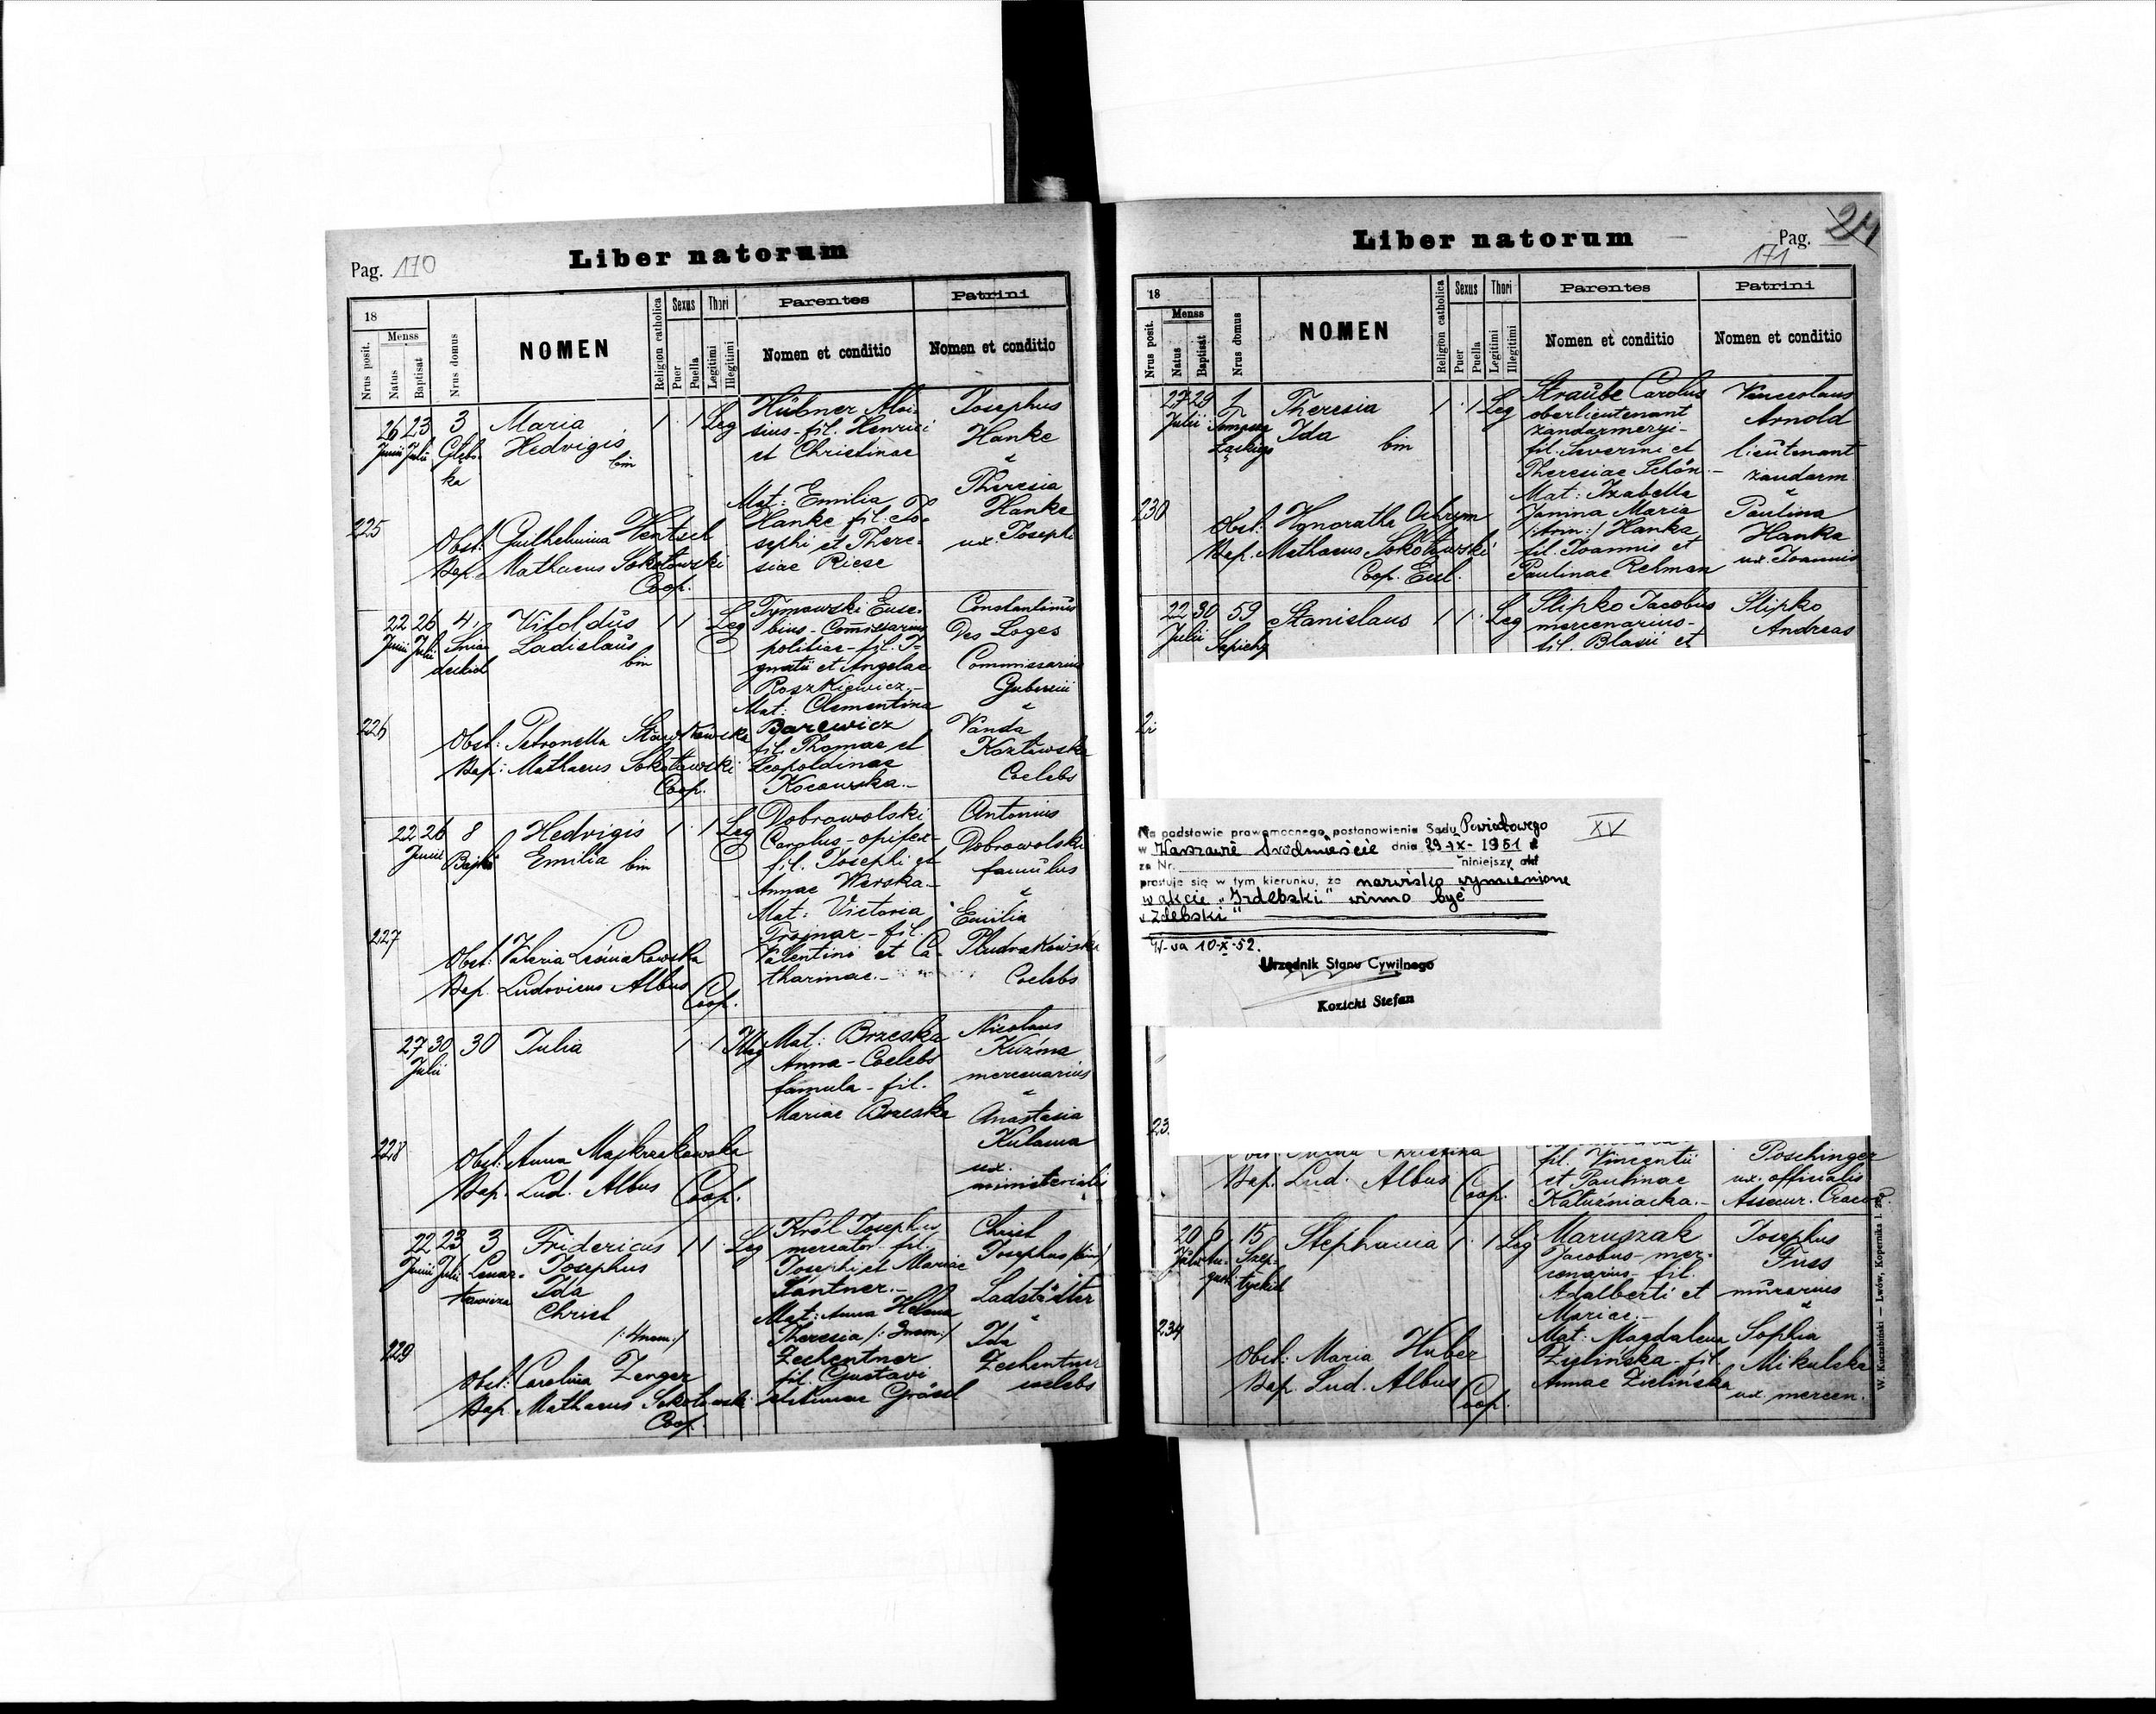 Pag. 170
Liber natorum
18
Nrus posit.
Menss
Natus
Baptisat
Nrus domus
NOMEN
Religion catholica
Sexus
Puer
Puella
Thori
Legitimi
Illegitimi
Parentes
Nomen et conditio
Patrini
Nomen et conditio
225
26 23 3
Junii Julii Głębo-
ka
Maria
Hedvigis
bin
1 1 Leg
Hübner Aloi-
sius - fil. Henrici
et Christinae
Mat: Emilia
Hanke fil. Jo-
sephi et There-
siae Riese
Josephus
Hanke
Theresia
Hanke
ux. Josephi
Obst: Guilhelmina Hentschl
Bap. Mathaeus Sokołowski
Coop.
226
22 26 4
Junii Julii Śnia-
deckich
Vitoldus
Ladislaus
bin
1 1 Leg
Tymowski Euse-
bius - Commissarius
politiae - fil. I-
gnatii et Angelae
Roszkiewicz -
Mat: Clementina
Barewicz
fil. Thomae et
Leopoldinae
Kocowska -
Constantinus
Des Loges
Commissarius
Gubernii
Vanda
Kozłowska
Coelebs
Obst: Petronella
Bap: Mathaeus Sokołowski
Coop.
227
22 26 8
Junii Bajki
Hedvigis
Emilia bin
1 1 Leg
Dobrowolski
Carolus - opifex -
fil. Josephi et
Annae Werska -
Mat: Victoria
Trojnar - fil.
Valentini et Ca-
tharinae -
Antonius
Dobrowolski
famulus
Emilia
Coelebs
Obst: Valeria Leśniakowska
Bap. Ludovicus Albus
Coop.
228
27 30 30
Julii
Julia
1 1 Illeg
Mat: Brzeska
Anna - Coelebs
famula - fil.
Mariae Brzeska
Nicolaus
Kuźma
mercenarius
Anastasia
Kulawa
ux.
ministerialis
Obst: Anna Majkrzakowska
Bap. Lud. Albus Coop.
229
22 23 3
Junii Julii Lenar-
towicza
Fridericus
Josephus
Ida
Christ
/: 4nom :/
1 1 Leg
Król Josephus
mercator - fil.
Josephi et Mariae
Fantner -
Mat: Anna Helena
Theresia /: 3nom :/
Zechentner
fil. Gustavi
Christ
Josephus /bin/
Ladstädter
Ida
Zechentner
coelebs
Obst: Carolina Zenger
Bap. Mathaeus Sokołowski
Coop.
Liber natorum
Pag. 24
171
18
Nrus posit.
Menss
Natus
Baptisat
Nrus domus
NOMEN
Religion catholica
Sexus
Puer
Puella
Thori
Legitimi
Illegitimi
Parentes
Nomen et conditio
Patrini
Nomen et conditio
230
27 29
Julii
Theresia
Ida bin
1 1 Leg
Straube Carolus
oberlieutenant
żandarmeryi -
fil. Severini et
Theresiae Schön -
Mat: Izabella
Janina Maria
/: 3nm :/ Hanka
fil. Joannis et
Paulinae Rehman
Venceslaus
Arnold
lieutenant
żandarm
Paulina
Hanka
ux. Joannis
Obst: Honoratha Ochrym
Bap. Mathaeus Sokołowski
Coop. Eccl.
22 30 59
Julii Sapiehy
Stanislaus
1 1 Leg
Slipko Jacobus
mercenarius -
fil. Blasii et
Slipko
Andreas
Na podstawie prawomocnego postanowienia Sądu Powiatowego
w Warszawie Śródmieście dnia 29-IX-1951 r
za Nr. niniejszy akt
prostuje się w tym kierunku, że nazwisko wymienione
w akcie „Izdebski" winno być
„Zdebski"
W-wa 10-X-52.
Urzędnik Stanu Cywilnego
Kozicki Stefan
XV
23
Christina
Bap. Lud. Albus Coop.
fil. Vincentii
et Paulinae
Katuśniacka -
Poschinger
ux. officialis
Assecur. Cracov.
234
20 6 15
Julii Au-
gusti Szep-
tyckich
Stephania
1 1 Leg
Maruszak
Jacobus - mer-
cenarius - fil.
Adalberti et
Mariae -
Mat: Magdalena
Zielińska - fil.
Annae Zielińska
Josephus
Fuss
murarius
Sophia
Mikulska
ux. mercen.
Obst: Maria Huber
Bap. Lud. Albus
Coop.
W. Kuczabiński — Lwów, Kopernika l.